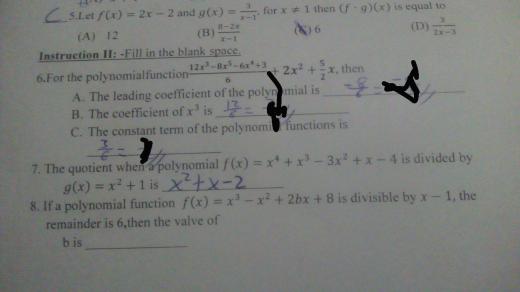 C 5.Let f(x) = 2x − 2 and g(x) = 3/(x−1), for x ≠ 1 then (f · g)(x) is equal to
(A) 12 (B) (8−2x)/(x−1) (C) 6 (D) 3/(2x−3)
Instruction II: -Fill in the blank space.
6.For the polynomialfunction (12x³−8x⁵−6x⁴+3)/6 + 2x² + 5/2 x, then
A. The leading coefficient of the polynomial is −8/6 =
B. The coefficient of x³ is =
C. The constant term of the polynomial functions is
3/6 =
7. The quotient when a polynomial f(x) = x⁴ + x³ − 3x² + x − 4 is divided by
g(x) = x² + 1 is x²+x−2
8. If a polynomial function f(x) = x³ − x² + 2bx + 8 is divisible by x − 1, the
remainder is 6,then the valve of
b is